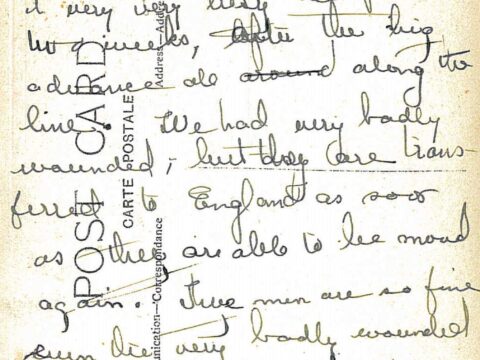 it very very busy
two weeks, after the big
advance all around along the
line. We had very badly
wounded, but they are trans-
ferred to England as soon
as they are able to be moved
again. These men are so fine
even the very badly wounded
POST CARD
CARTE POSTALE
Address—Address
Communication—Correspondance